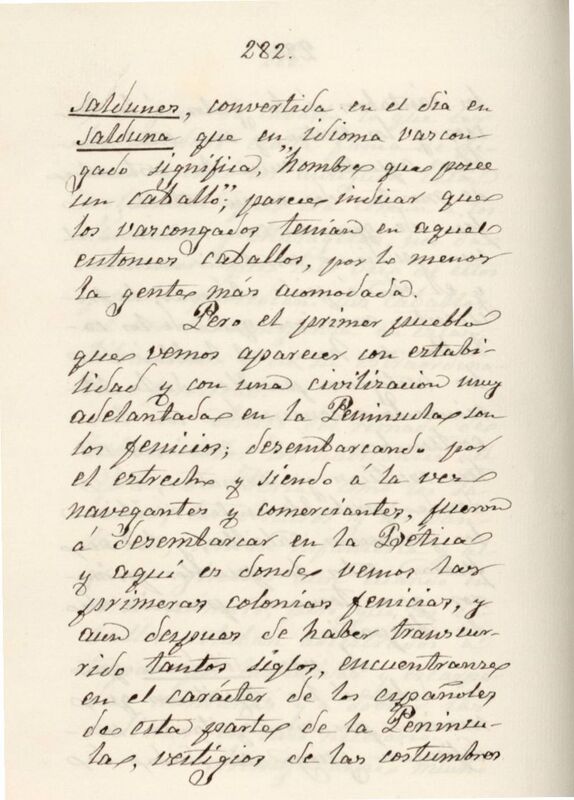 282.
Saldunes, convertida en el dia en
Salduna que en idioma vascon-
gado significa, "hombre que posee
un caballo"; parece indicar que
los vascongados tenian en aquel
entonces caballos, por lo menos
la gente más acomodada.
Pero el primer pueblo
que vemos aparecer con estabi-
lidad y con una civilizacion muy
adelantada en la Peninsula son
los fenicios; desembarcando por
el estrecho y siendo á la vez
navegantes y comerciantes, fueron
á desembarcar en la Betica
y aquí es donde vemos las
primeras colonias fenicias, y
aun despues de haber transcur-
rido tantos siglos, encuentranse
en el carácter de los españoles
de esta parte de la Peninsu-
la, vestigios de las costumbres